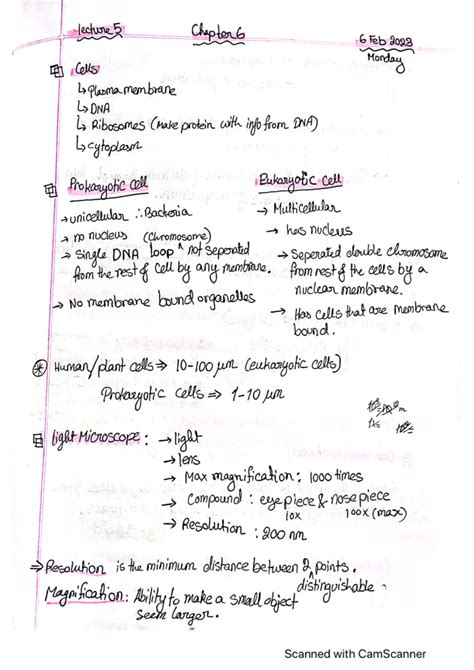 lecture 5
Chapter 6
6 Feb 2023
Monday
Cells
↳ Plasma membrane
↳ DNA
↳ Ribosomes (make protein with info from DNA)
↳ cytoplasm
Prokaryotic cell
→ unicellular ∴ Bacteria
→ no nucleus (chromosome)
→ Single DNA loop ^ not seperated
from the rest of cell by any membrane.
→ No membrane bound organelles
Eukaryotic cell
→ Multicellular
→ has nucleus
→ Seperated double chromosome
from rest of the cells by a
nuclear membrane.
→ Has cells that are membrane
bound.
* Human/plant cells ⇒ 10-100 μm (eukaryotic cells)
Prokaryotic cells ⇒ 1-10 μm
light Microscope : → light
→ lens
→ Max magnification : 1000 times
→ Compound : eye piece & nose piece
10x 100x (max)
→ Resolution : 200 nm
⇒ Resolution is the minimum distance between 2 ^ points.
distinguishable
Magnification : Ability to make a small object
seem larger.
Scanned with CamScanner